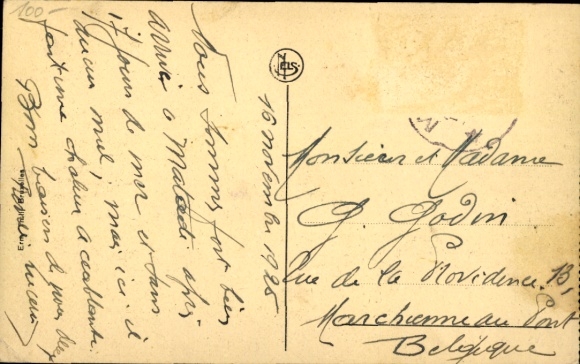 100-
16 novembre 1925
Nous sommes fort bien
arrivé à Matadi après
17 jours de mer et sans
aucun mal, mais ici il
fait une chaleur accablante.
Bons baisers de vous deux
NELS
Monsieur et Madame
G. Godin
Rue de la Providence 13,
Marchienne au Pont
Belgique